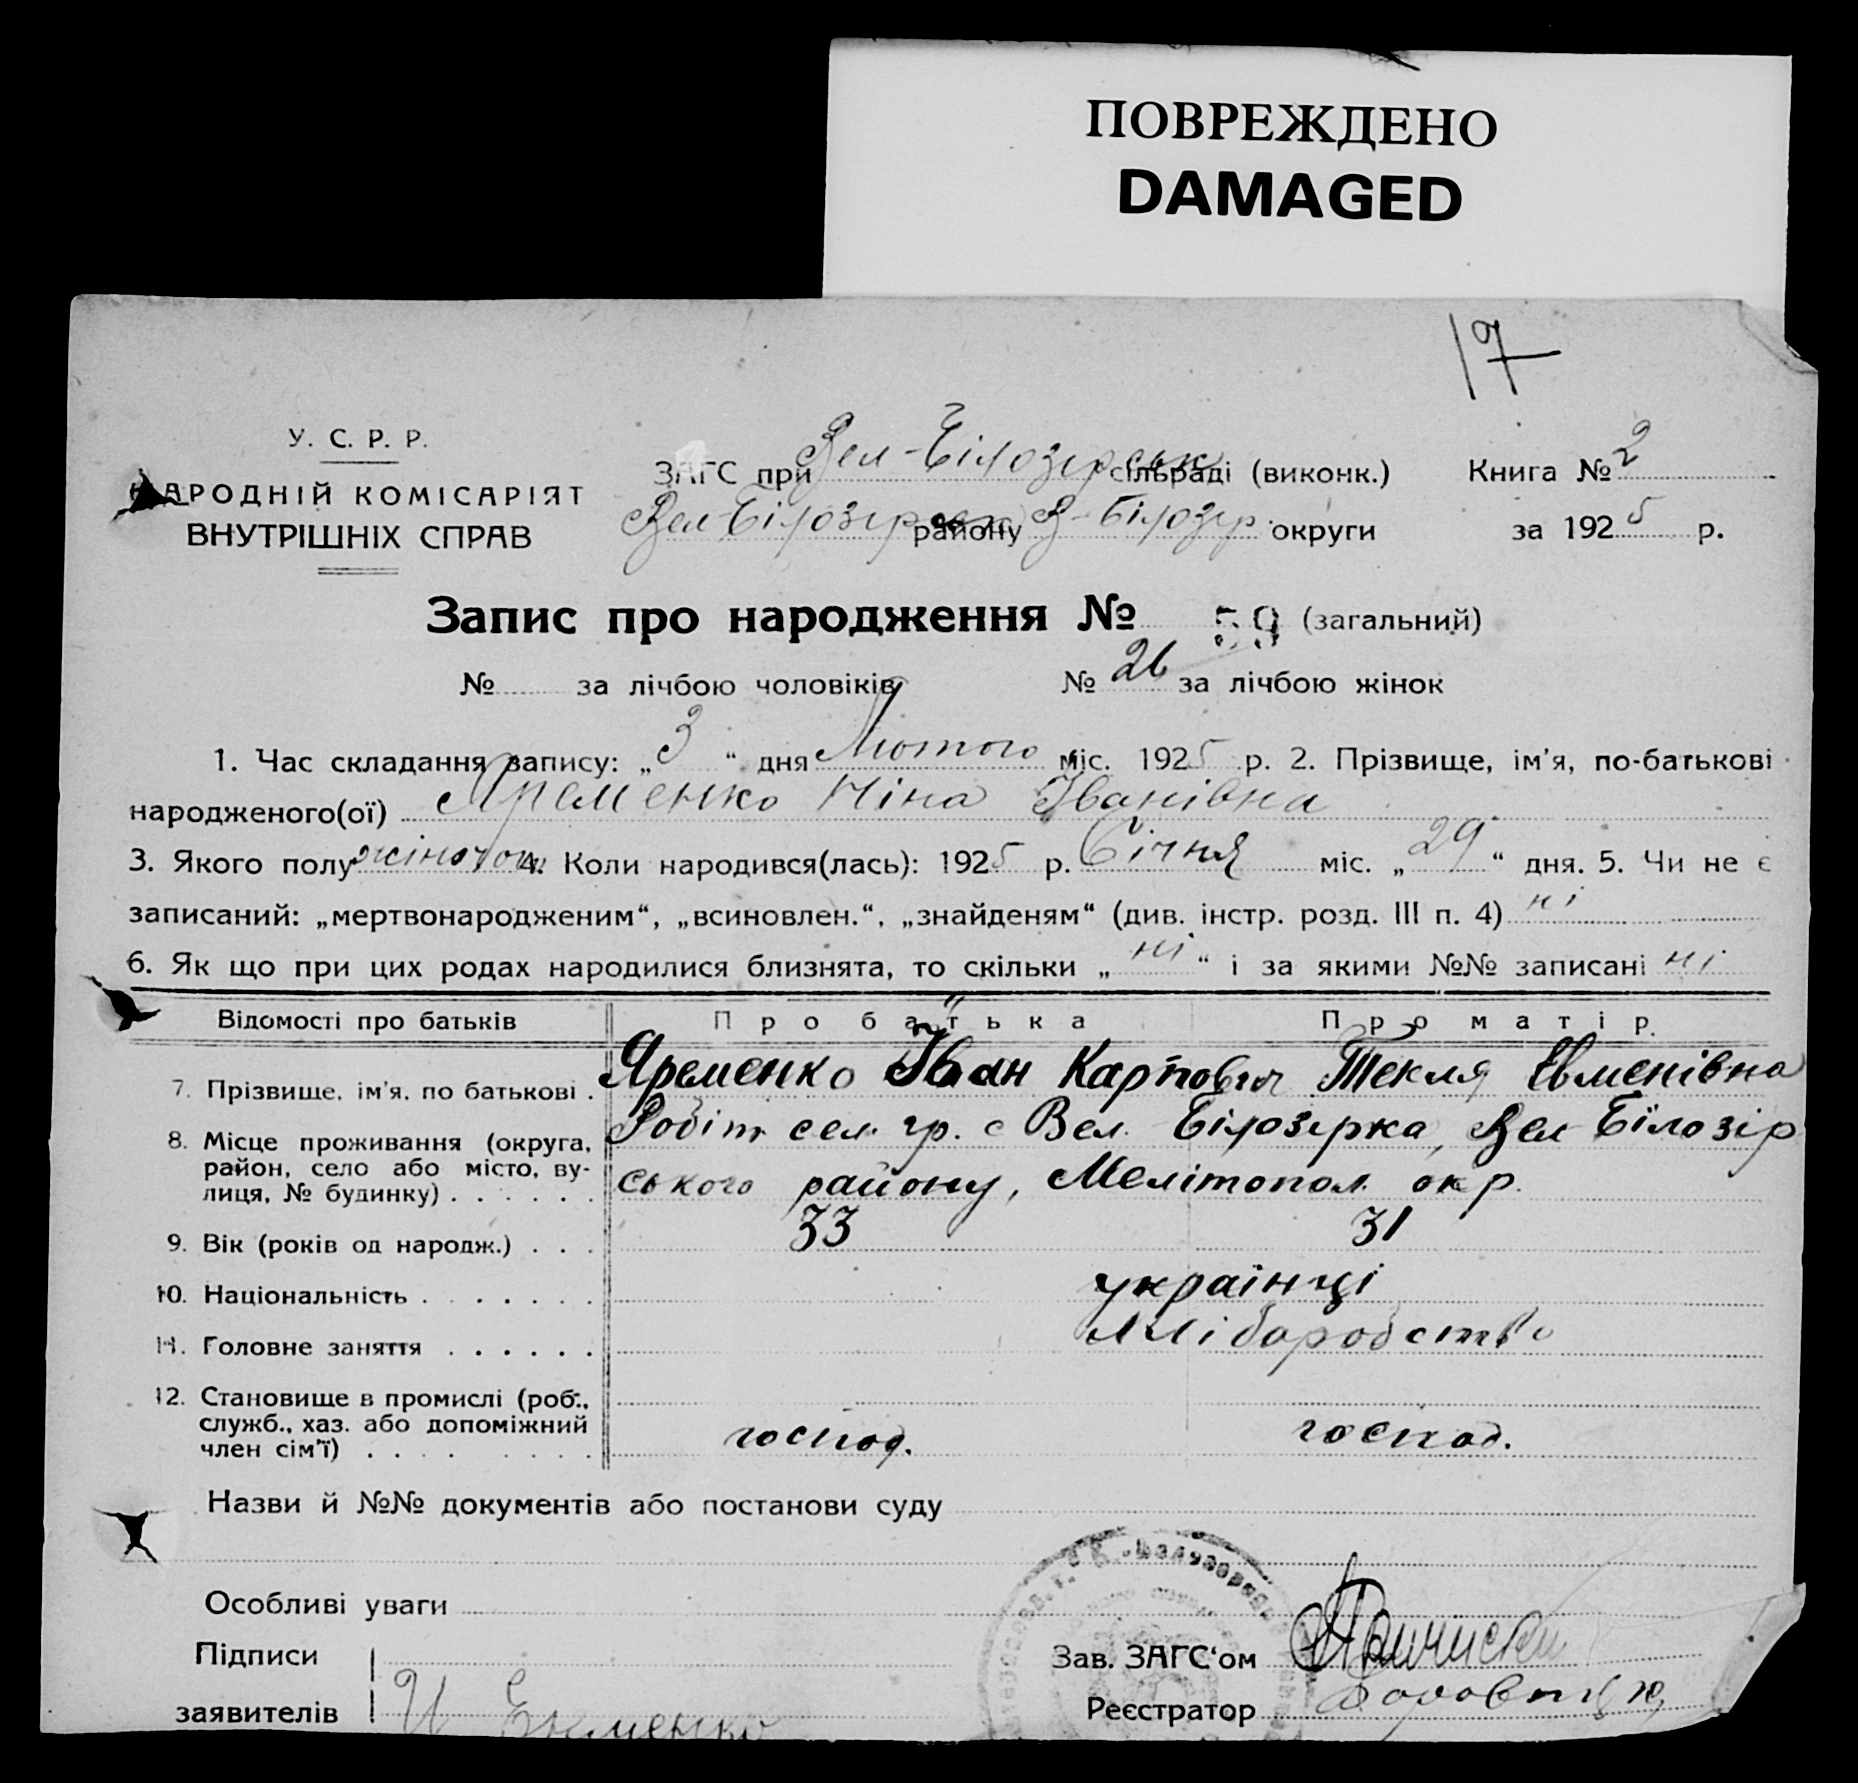 ПОВРЕЖДЕНО
DAMAGED
17
У. С. Р. Р.
НАРОДНІЙ КОМІСАРІЯТ
ВНУТРІШНІХ СПРАВ
ЗАГС при Вел-Білозерськ сільраді (виконк.) Книга № 2
Вел-Білозерськ району В-Білозер округи за 1925 р.
Запис про народження № 59 (загальний)
№ за лічбою чоловіків № 26 за лічбою жінок
1. Час складання запису: „3“ дня Лютого міс. 1925 р. 2. Прізвище, ім'я, по-батькові
народженого(ої) Яременко Ніна Іванівна
3. Якого полу жіночого 4. Коли народився(лась): 1925 р. Січня міс. „29“ дня. 5. Чи не є
записаний: „мертвонародженим“, „всиновлен.“, „знайденям“ (див. інстр. розд. III п. 4) ні
6. Як що при цих родах народилися близнята, то скільки „ні“ і за якими №№ записані ні
Відомості про батьків Про батька Про матір
7. Прізвище, ім'я, по батькові . Яременко Іван Карпович Текля Євменівна
8. Місце проживання (округа, район, село або місто, вулиця, № будинку) . . . . . . Робіт сел. гр. с Вел. Білозірка, Вел Білозір
ського району, Мелітопол окр.
9. Вік (років од народж.) . . . 33 31
10. Національність . . . . . . . українці
11. Головне заняття . . . . . . хліборобство
12. Становище в промислі (роб., служб., хаз. або допоміжний член сім'ї) . . . . . . . . господ. господ.
Назви й №№ документів або постанови суду
Особливі уваги
Підписи
заявителів
Зав. ЗАГС‘ом
Реєстратор